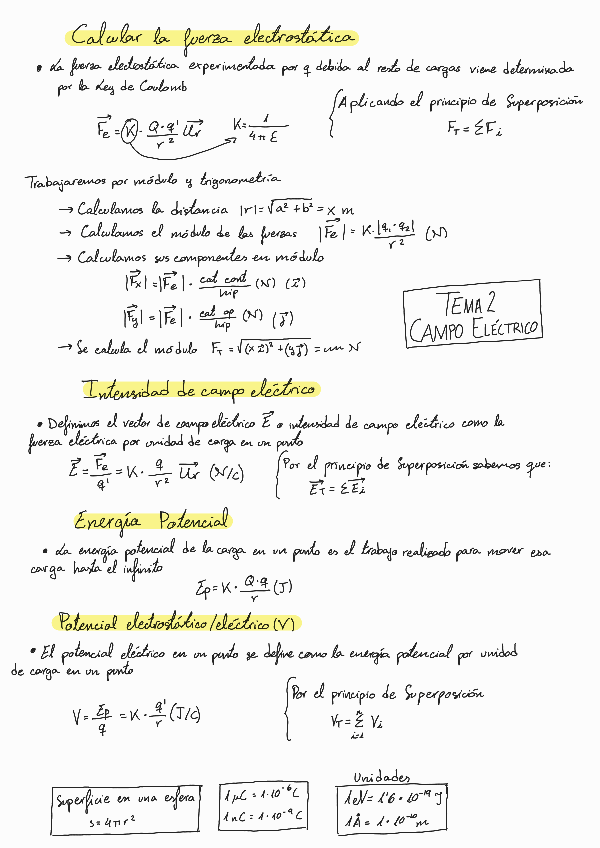 Calcular la fuerza electrostática
• La fuerza electostática experimentada por q debida al resto de cargas viene determinada
por la Ley de Coulomb
Aplicando el principio de Superposición
F⃗e = K · Q·q'/r² U⃗r K = 1/4πε
F_T = ΣF⃗i
Trabajaremos por módulo y trigonometría
→ Calculamos la distancia |r| = √a² + b² = x m
→ Calculamos el módulo de las fuerzas |F⃗e| = K·|q₁·q₂|/r² (N)
→ Calculamos sus componentes en módulo
|F⃗x| = |F⃗e| · cat cont/hip (N) (i⃗)
|F⃗y| = |F⃗e| · cat op/hip (N) (j⃗)
TEMA 2
CAMPO ELÉCTRICO
→ Se calcula el módulo F_T = √(x i⃗)² + (y j⃗)² = um N
Intensidad de campo eléctrico
• Definimos el vector de campo eléctrico E⃗ o intensidad de campo eléctrico como la
fuerza eléctrica por unidad de carga en un punto
E⃗ = F⃗e/q' = K · q/r² U⃗r (N/C)
Por el principio de Superposición sabemos que:
E⃗_T = ΣE⃗i
Energía Potencial
• La energía potencial de la carga en un punto es el trabajo realizado para mover esa
carga hasta el infinito
Ep = K · Q·q/r (J)
Potencial electrostático/eléctrico (V)
• El potencial eléctrico en un punto se define como la energía potencial por unidad
de carga en un punto
Por el principio de Superposición
V = Ep/q = K · q'/r (J/C)
V_T = Σ Vi
Unidades
Superficie en una esfera
s = 4πr²
1 μC = 1·10⁻⁶ C
1 nC = 1·10⁻⁹ C
1 eN = 1'6 · 10⁻¹⁹ J
1 Å = 1 · 10⁻¹⁰ m